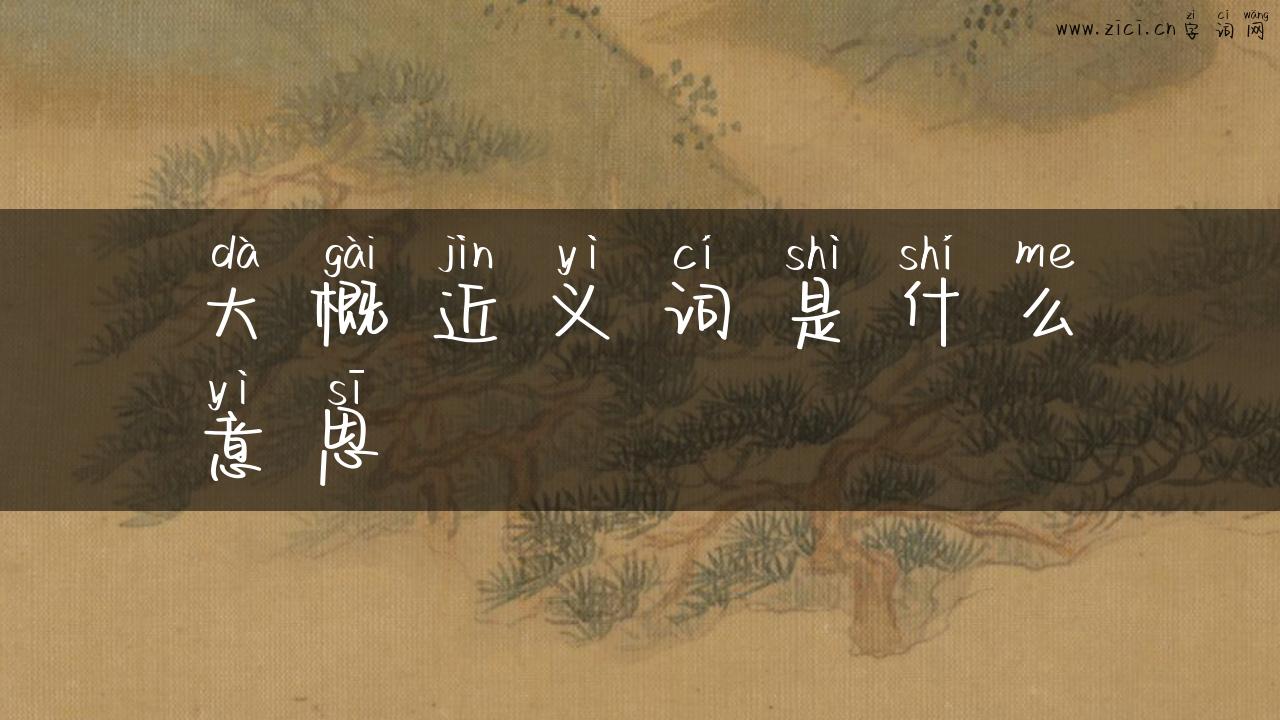 zì cí wǎng
www.zici.cn 字词网
dà gài jìn yì cí shì shí me
大概近义词是什么
yì sī
意思